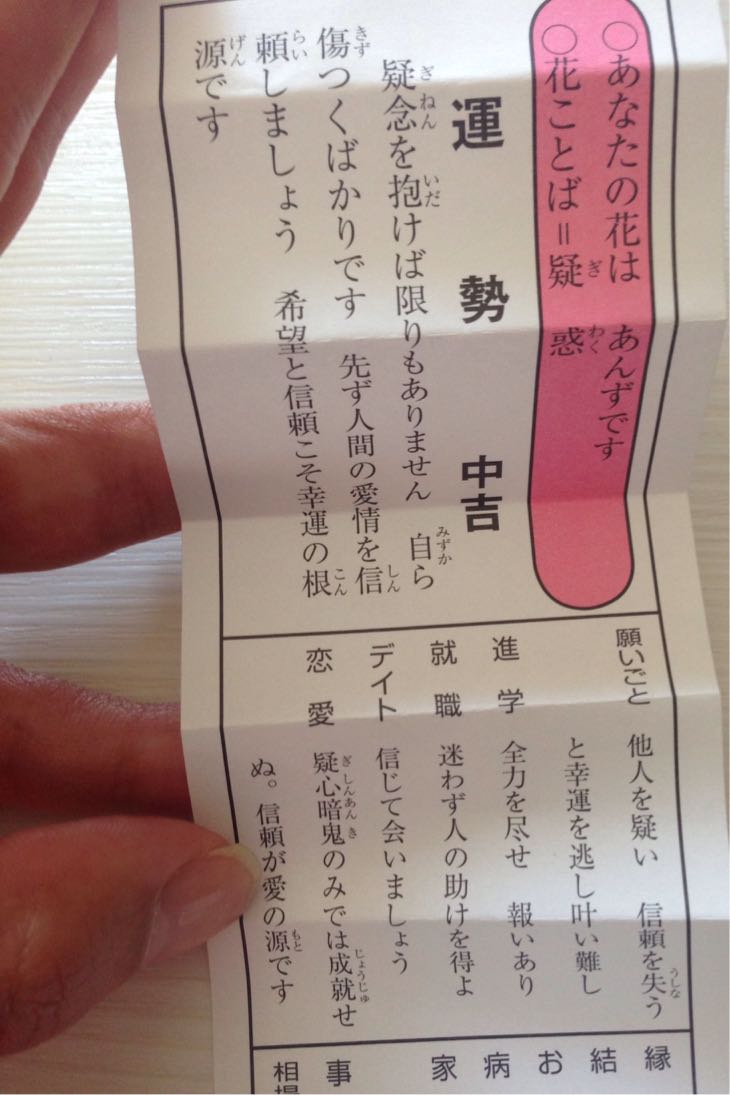 ○あなたの花は あんずです
○花ことば＝疑惑
運勢 中吉
疑念を抱けば限りもありません 自ら
傷つくばかりです 先ず人間の愛情を信
頼しましょう 希望と信頼こそ幸運の根
源です
願いごと 他人を疑い 信頼を失う
と幸運を逃し叶い難し
進学 全力を尽せ 報いあり
就職 迷わず人の助けを得よ
デイト 信じて会いましょう
恋愛 疑心暗鬼のみでは成就せ
ぬ。信頼が愛の源です
縁
結
お
病
家
事
相